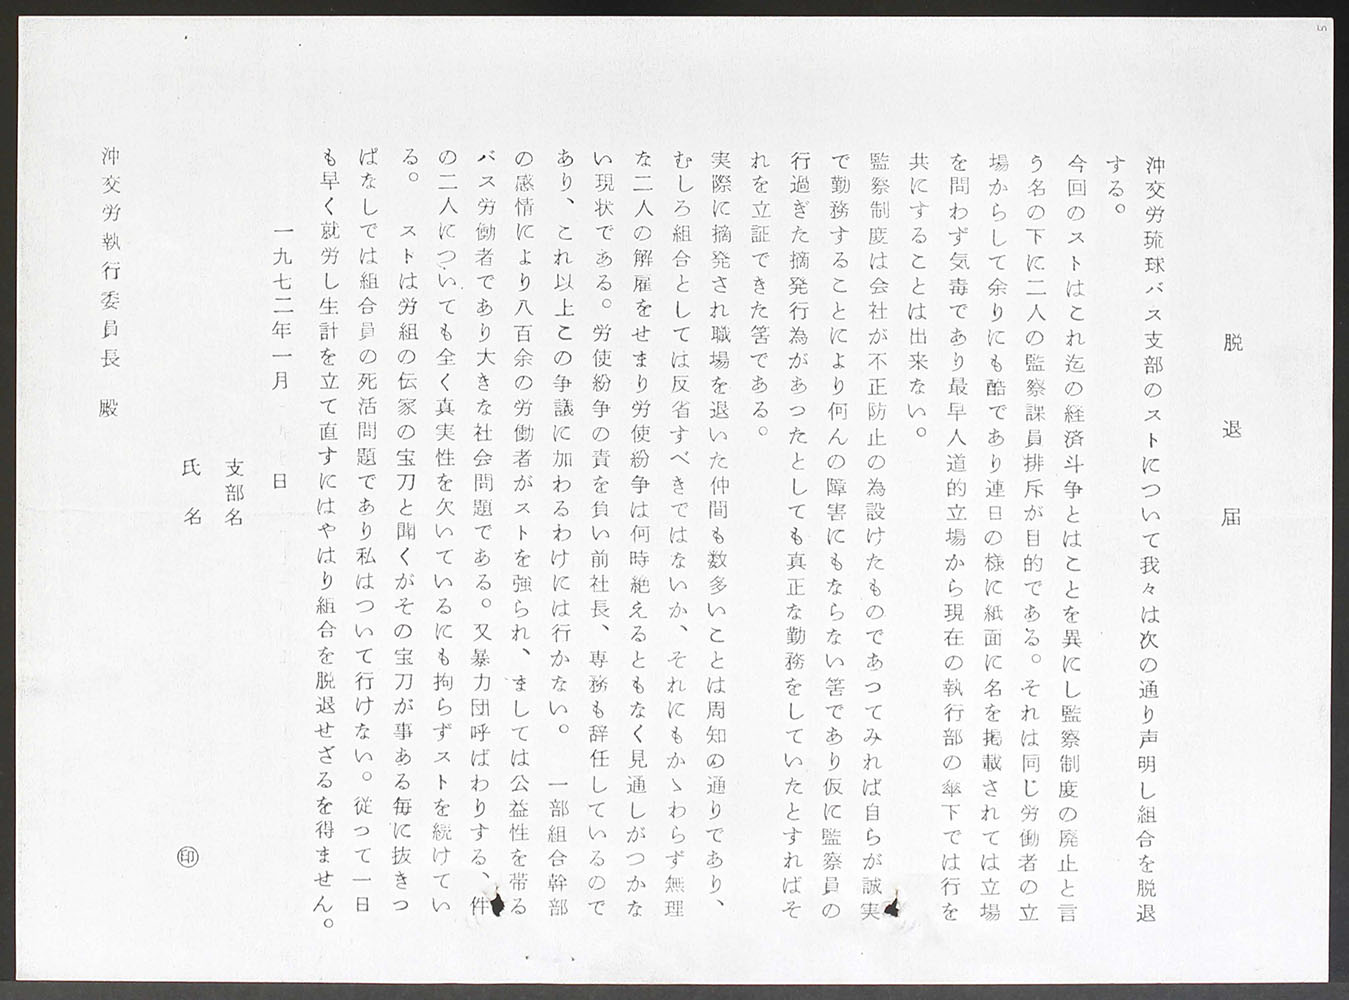 脱退届
沖交労琉球バス支部のストについて我々は次の通り声明し組合を脱退
する。
今回のストはこれ迄の経済斗争とはことを異にし監察制度の廃止と言
う名の下に二人の監察課員排斥が目的である。それは同じ労働者の立
場からして余りにも酷であり連日の様に紙面に名を掲載されては立場
を問わず気毒であり最早人道的立場から現在の執行部の傘下では行を
共にすることは出来ない。
監察制度は会社が不正防止の為設けたものであつてみれば自らが誠実
で勤務することにより何んの障害にもならない筈であり仮に監察員の
行過ぎた摘発行為があつたとしても真正な勤務をしていたとすればそ
れを立証できた筈である。
実際に摘発され職場を退いた仲間も数多いことは周知の通りであり、
むしろ組合としては反省すべきではないか、それにもかゝわらず無理
な二人の解雇をせまり労使紛争は何時絶えるともなく見通しがつかな
い現状である。労使紛争の責を負い前社長、専務も辞任しているので
あり、これ以上この争議に加わるわけには行かない。 一部組合幹部
の感情により八百余の労働者がストを強られ、ましては公益性を帯る
バス労働者であり大きな社会問題である。又暴力団呼ばわりする、件
の二人についても全く真実性を欠いているにも拘らずストを続けてい
る。 ストは労組の伝家の宝刀と聞くがその宝刀が事ある毎に抜きつ
ぱなしでは組合員の死活問題であり私はついて行けない。従つて一日
も早く就労し生計を立て直すにはやはり組合を脱退せざるを得ません。
一九七二年一月 日
支部名
氏名 ㊞
沖交労執行委員長 殿